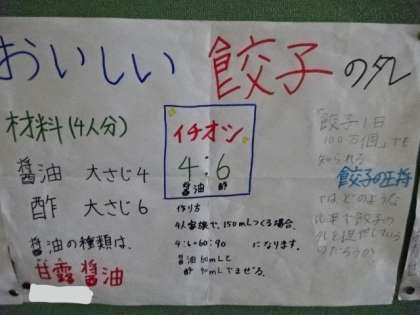 おいしい 餃子のタレ
材料(4人分)
醤油 大さじ4
酢 大さじ6
醤油の種類は、
甘露醤油
イチオシ
4:6
醤油 酢
作り方
4人家族で、150mLつくる場合、
4:6=60:90 になります。
醤油60mLと
酢 90mLでまぜる。
「餃子1日
100万個」でも
知られる
餃子の王将
ではどのような
比率で餃子の
タレを提供している
のだろうか